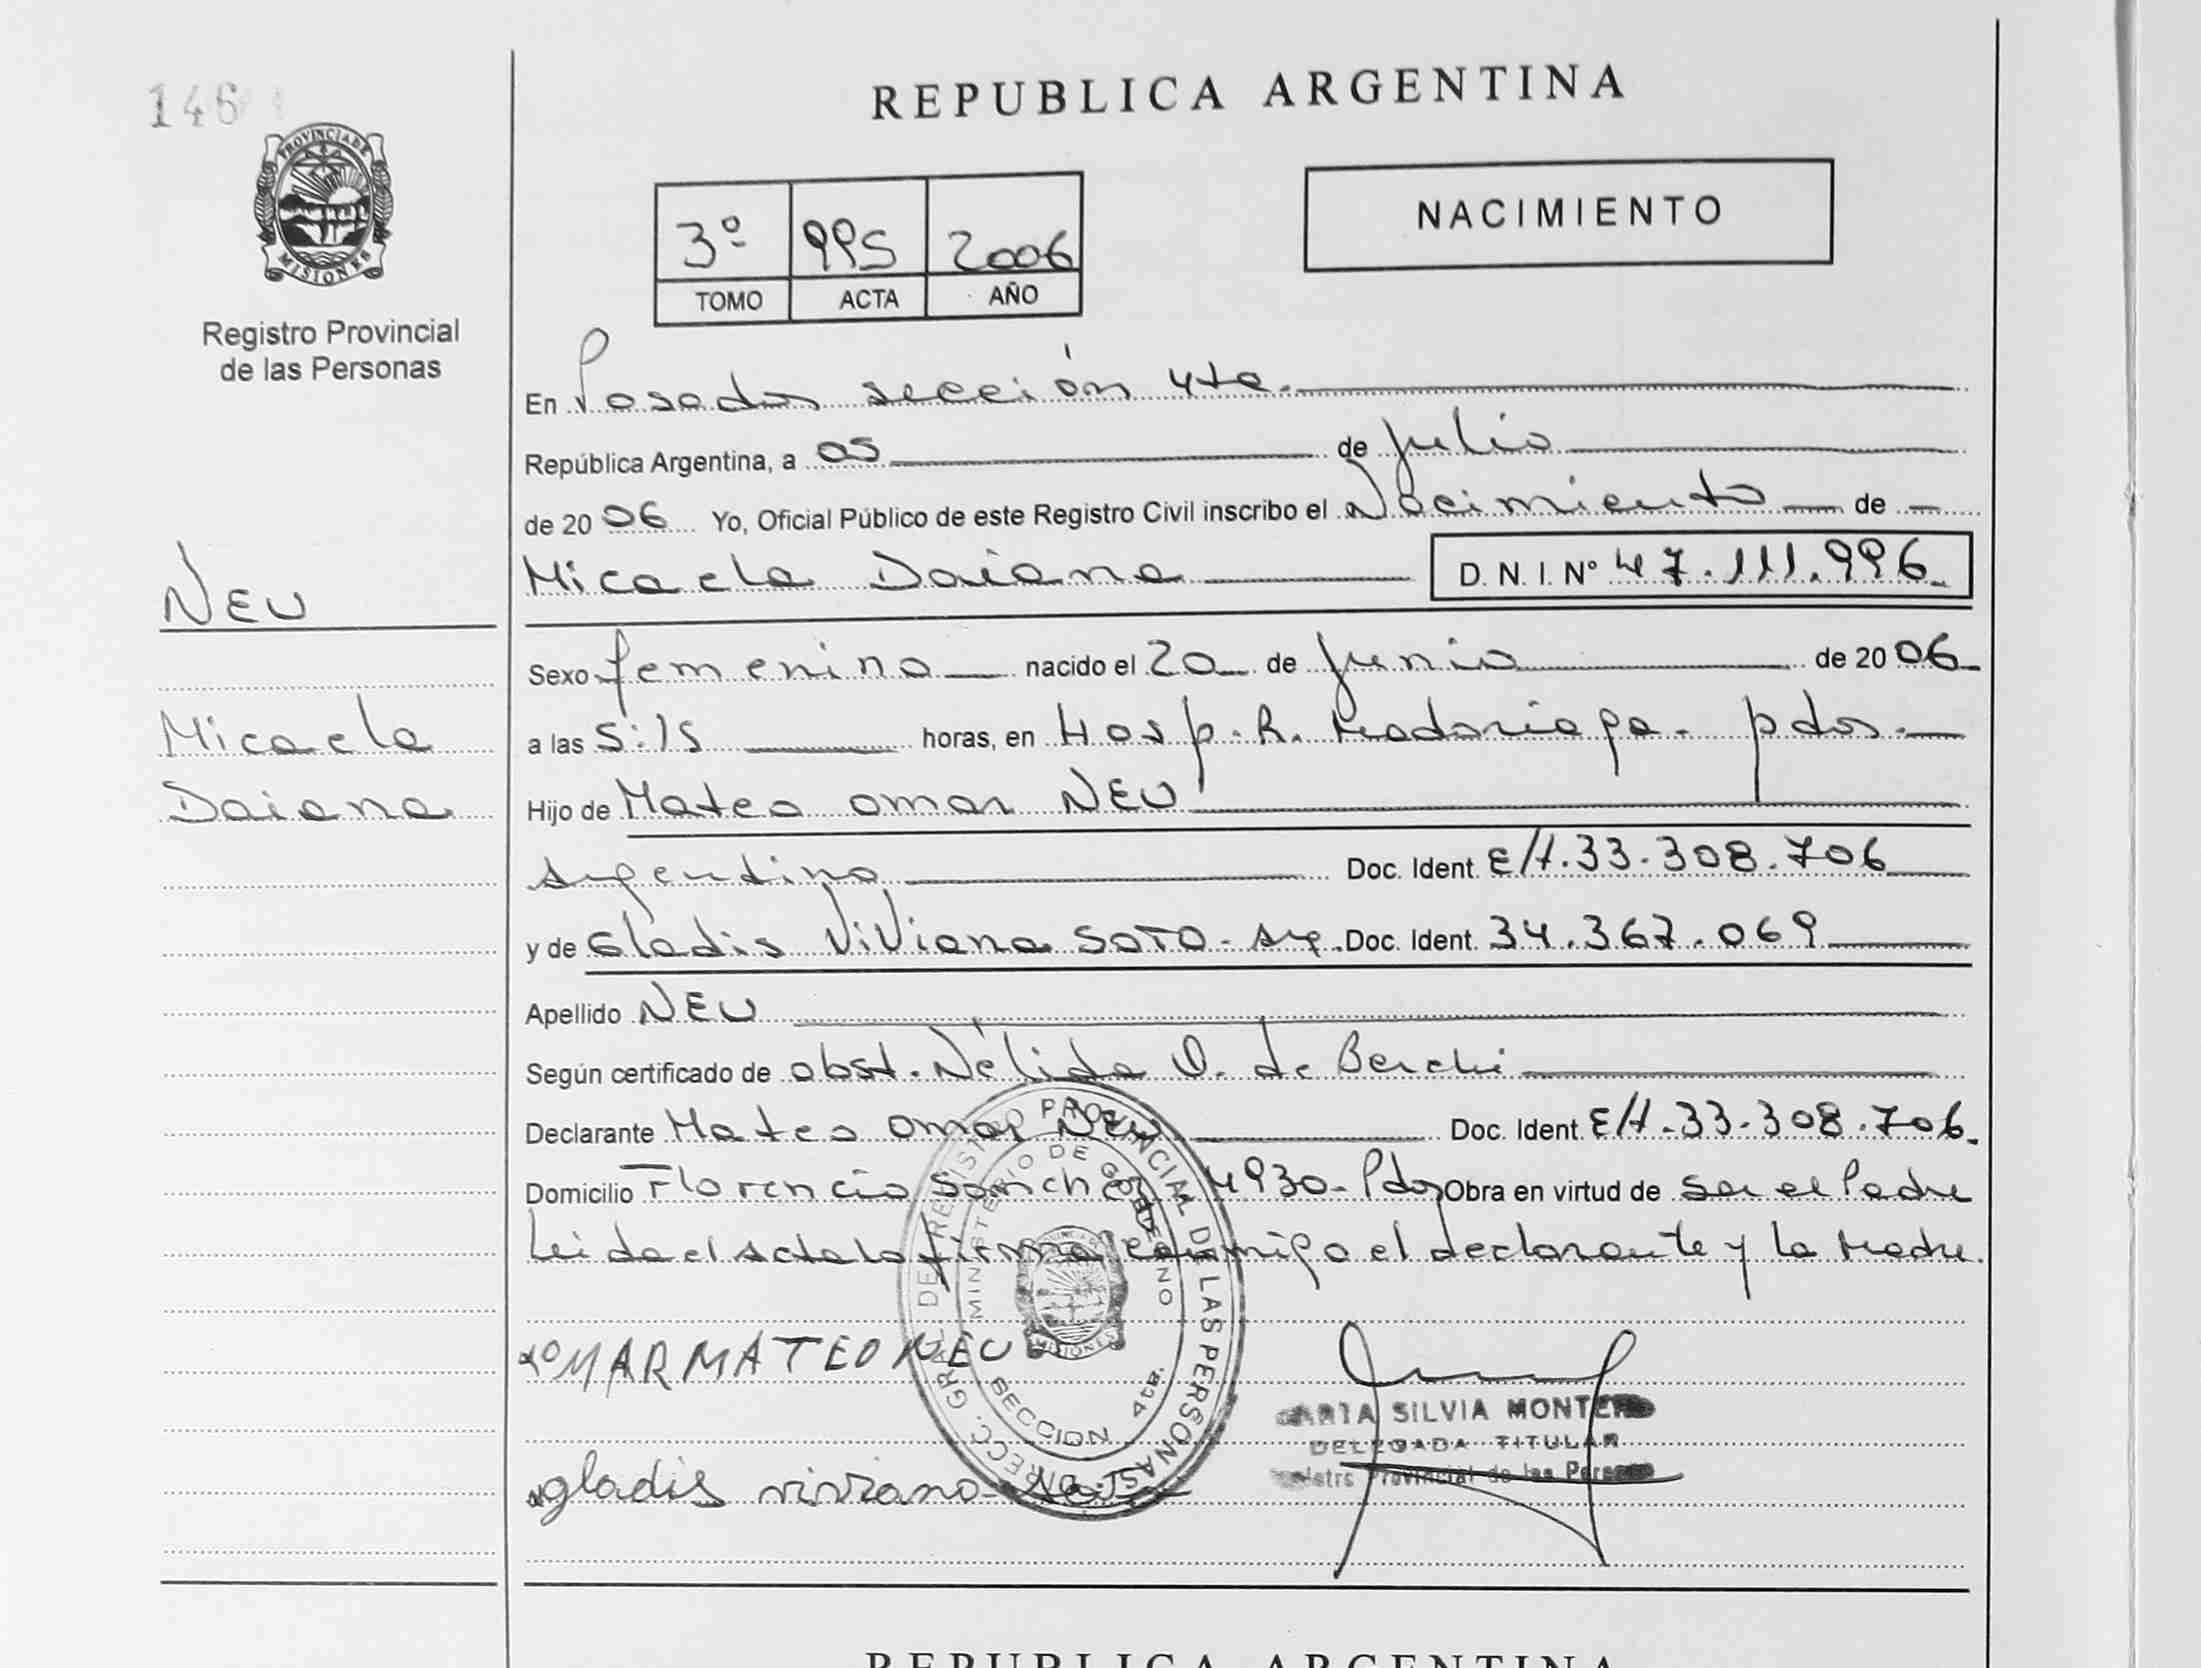 146
PROVINCIA DE
MISIONES
Registro Provincial
de las Personas
NEU
Micaela
Daiana
REPUBLICA ARGENTINA
3º 995 2006
TOMO ACTA AÑO
NACIMIENTO
En Posadas sección 4ta.
República Argentina, a 05 de julio
de 2006 Yo, Oficial Público de este Registro Civil inscribo el Nacimiento de
Micaela Daiana D. N. I. Nº 47.111.996
Sexo femenino nacido el 20 de junio de 2006
a las 5:15 horas, en Hosp. R. Madariaga. pdas.
Hijo de Mateo omar NEU
argentino Doc. Ident. 33.308.706
y de Gladis Viviana SOTO - arg. Doc. Ident. 34.367.069
Apellido NEU
Según certificado de obst. Nélida O. de Berchi
Declarante Mateo omar NEU Doc. Ident. 33.308.706
Domicilio Florencio Sanchez 4930 - Pdas Obra en virtud de ser el Padre
Leida el acta la firma conmigo el declarante y la madre.
OMAR MATEO NEU
gladis viviana
DIRECC. GRAL DE REGISTRO PROVINCIAL DE LAS PERSONAS
MINISTERIO DE GOBIERNO
MISIONES
SECCION 4ta.
MARIA SILVIA MONTERO
DELEGADA TITULAR
Registro Provincial de las Personas
REPUBLICA ARGENTINA